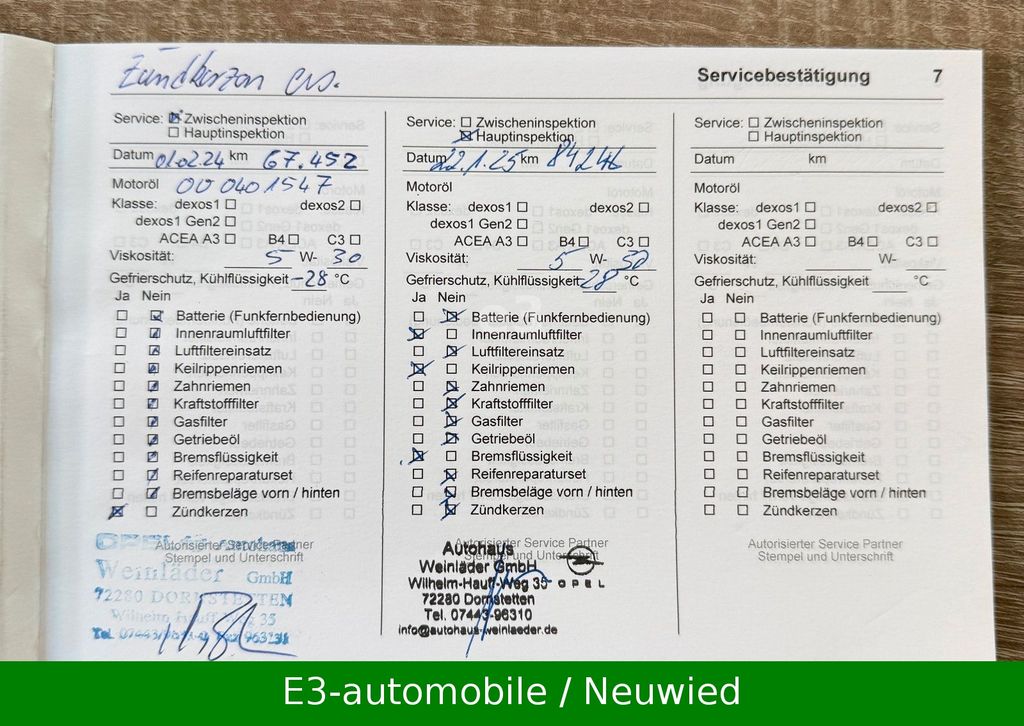 Zündkerzen ers.
Servicebestätigung 7
Service: ☒ Zwischeninspektion
☐ Hauptinspektion
Datum 01.02.24 km 67.452
Motoröl 00 0401547
Klasse: dexos1 ☐ dexos2 ☐
dexos1 Gen2 ☐
ACEA A3 ☐ B4 ☐ C3 ☐
Viskosität: 5 W- 30
Gefrierschutz, Kühlflüssigkeit -28 °C
Ja Nein
☐ ☒ Batterie (Funkfernbedienung)
☐ ☒ Innenraumluftfilter
☐ ☒ Luftfiltereinsatz
☐ ☒ Keilrippenriemen
☐ ☒ Zahnriemen
☐ ☒ Kraftstofffilter
☐ ☒ Gasfilter
☐ ☒ Getriebeöl
☐ ☒ Bremsflüssigkeit
☐ ☒ Reifenreparaturset
☐ ☒ Bremsbeläge vorn / hinten
☒ ☐ Zündkerzen
Autorisierter Service Partner
Stempel und Unterschrift
OPEL
Weinläder GmbH
72280 DORNSTETTEN
Wilhelm Hauff Weg 35
Service: ☐ Zwischeninspektion
☒ Hauptinspektion
Datum 22.1.25 km 84246
Motoröl
Klasse: dexos1 ☐ dexos2 ☐
dexos1 Gen2 ☐
ACEA A3 ☐ B4 ☐ C3 ☐
Viskosität: 5 W- 30
Gefrierschutz, Kühlflüssigkeit -28 °C
Ja Nein
☐ ☒ Batterie (Funkfernbedienung)
☒ ☐ Innenraumluftfilter
☐ ☒ Luftfiltereinsatz
☒ ☐ Keilrippenriemen
☐ ☒ Zahnriemen
☐ ☒ Kraftstofffilter
☐ ☒ Gasfilter
☐ ☒ Getriebeöl
☒ ☐ Bremsflüssigkeit
☐ ☒ Reifenreparaturset
☐ ☒ Bremsbeläge vorn / hinten
☐ ☒ Zündkerzen
Autorisierter Service Partner
Stempel und Unterschrift
Autohaus
Weinläder GmbH
Wilhelm-Hauff-Weg 35 OPEL
72280 Dornstetten
Tel. 07443-96310
info@autohaus-weinlaeder.de
Service: ☐ Zwischeninspektion
☐ Hauptinspektion
Datum km
Motoröl
Klasse: dexos1 ☐ dexos2 ☐
dexos1 Gen2 ☐
ACEA A3 ☐ B4 ☐ C3 ☐
Viskosität: W-
Gefrierschutz, Kühlflüssigkeit °C
Ja Nein
☐ ☐ Batterie (Funkfernbedienung)
☐ ☐ Innenraumluftfilter
☐ ☐ Luftfiltereinsatz
☐ ☐ Keilrippenriemen
☐ ☐ Zahnriemen
☐ ☐ Kraftstofffilter
☐ ☐ Gasfilter
☐ ☐ Getriebeöl
☐ ☐ Bremsflüssigkeit
☐ ☐ Reifenreparaturset
☐ ☐ Bremsbeläge vorn / hinten
☐ ☐ Zündkerzen
Autorisierter Service Partner
Stempel und Unterschrift
E3-automobile / Neuwied